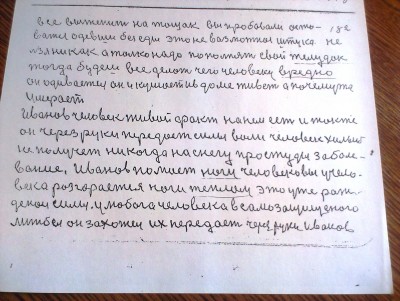 все выживит на тощак вы пробовали осто- где
вати одевши беседи это не возможная штука не
лзя никак а толко надо пополнять свой желудок
тогда будеш все делат чего человеку вредно
он одивается он и кушает и в доме живет а почему же
умерает
Иванов человек живой факт на нем ест и тоже
он через руки передает силы воли человек хилый
не получет никогда на снегу простуди заболе-
вание, Иванов помиет ноги человековы у чело-
века розгорается ноги теплом это уже рож-
деной силы. у любога человека в самозащитного
лишбы он захожел их передает через руки Иванов